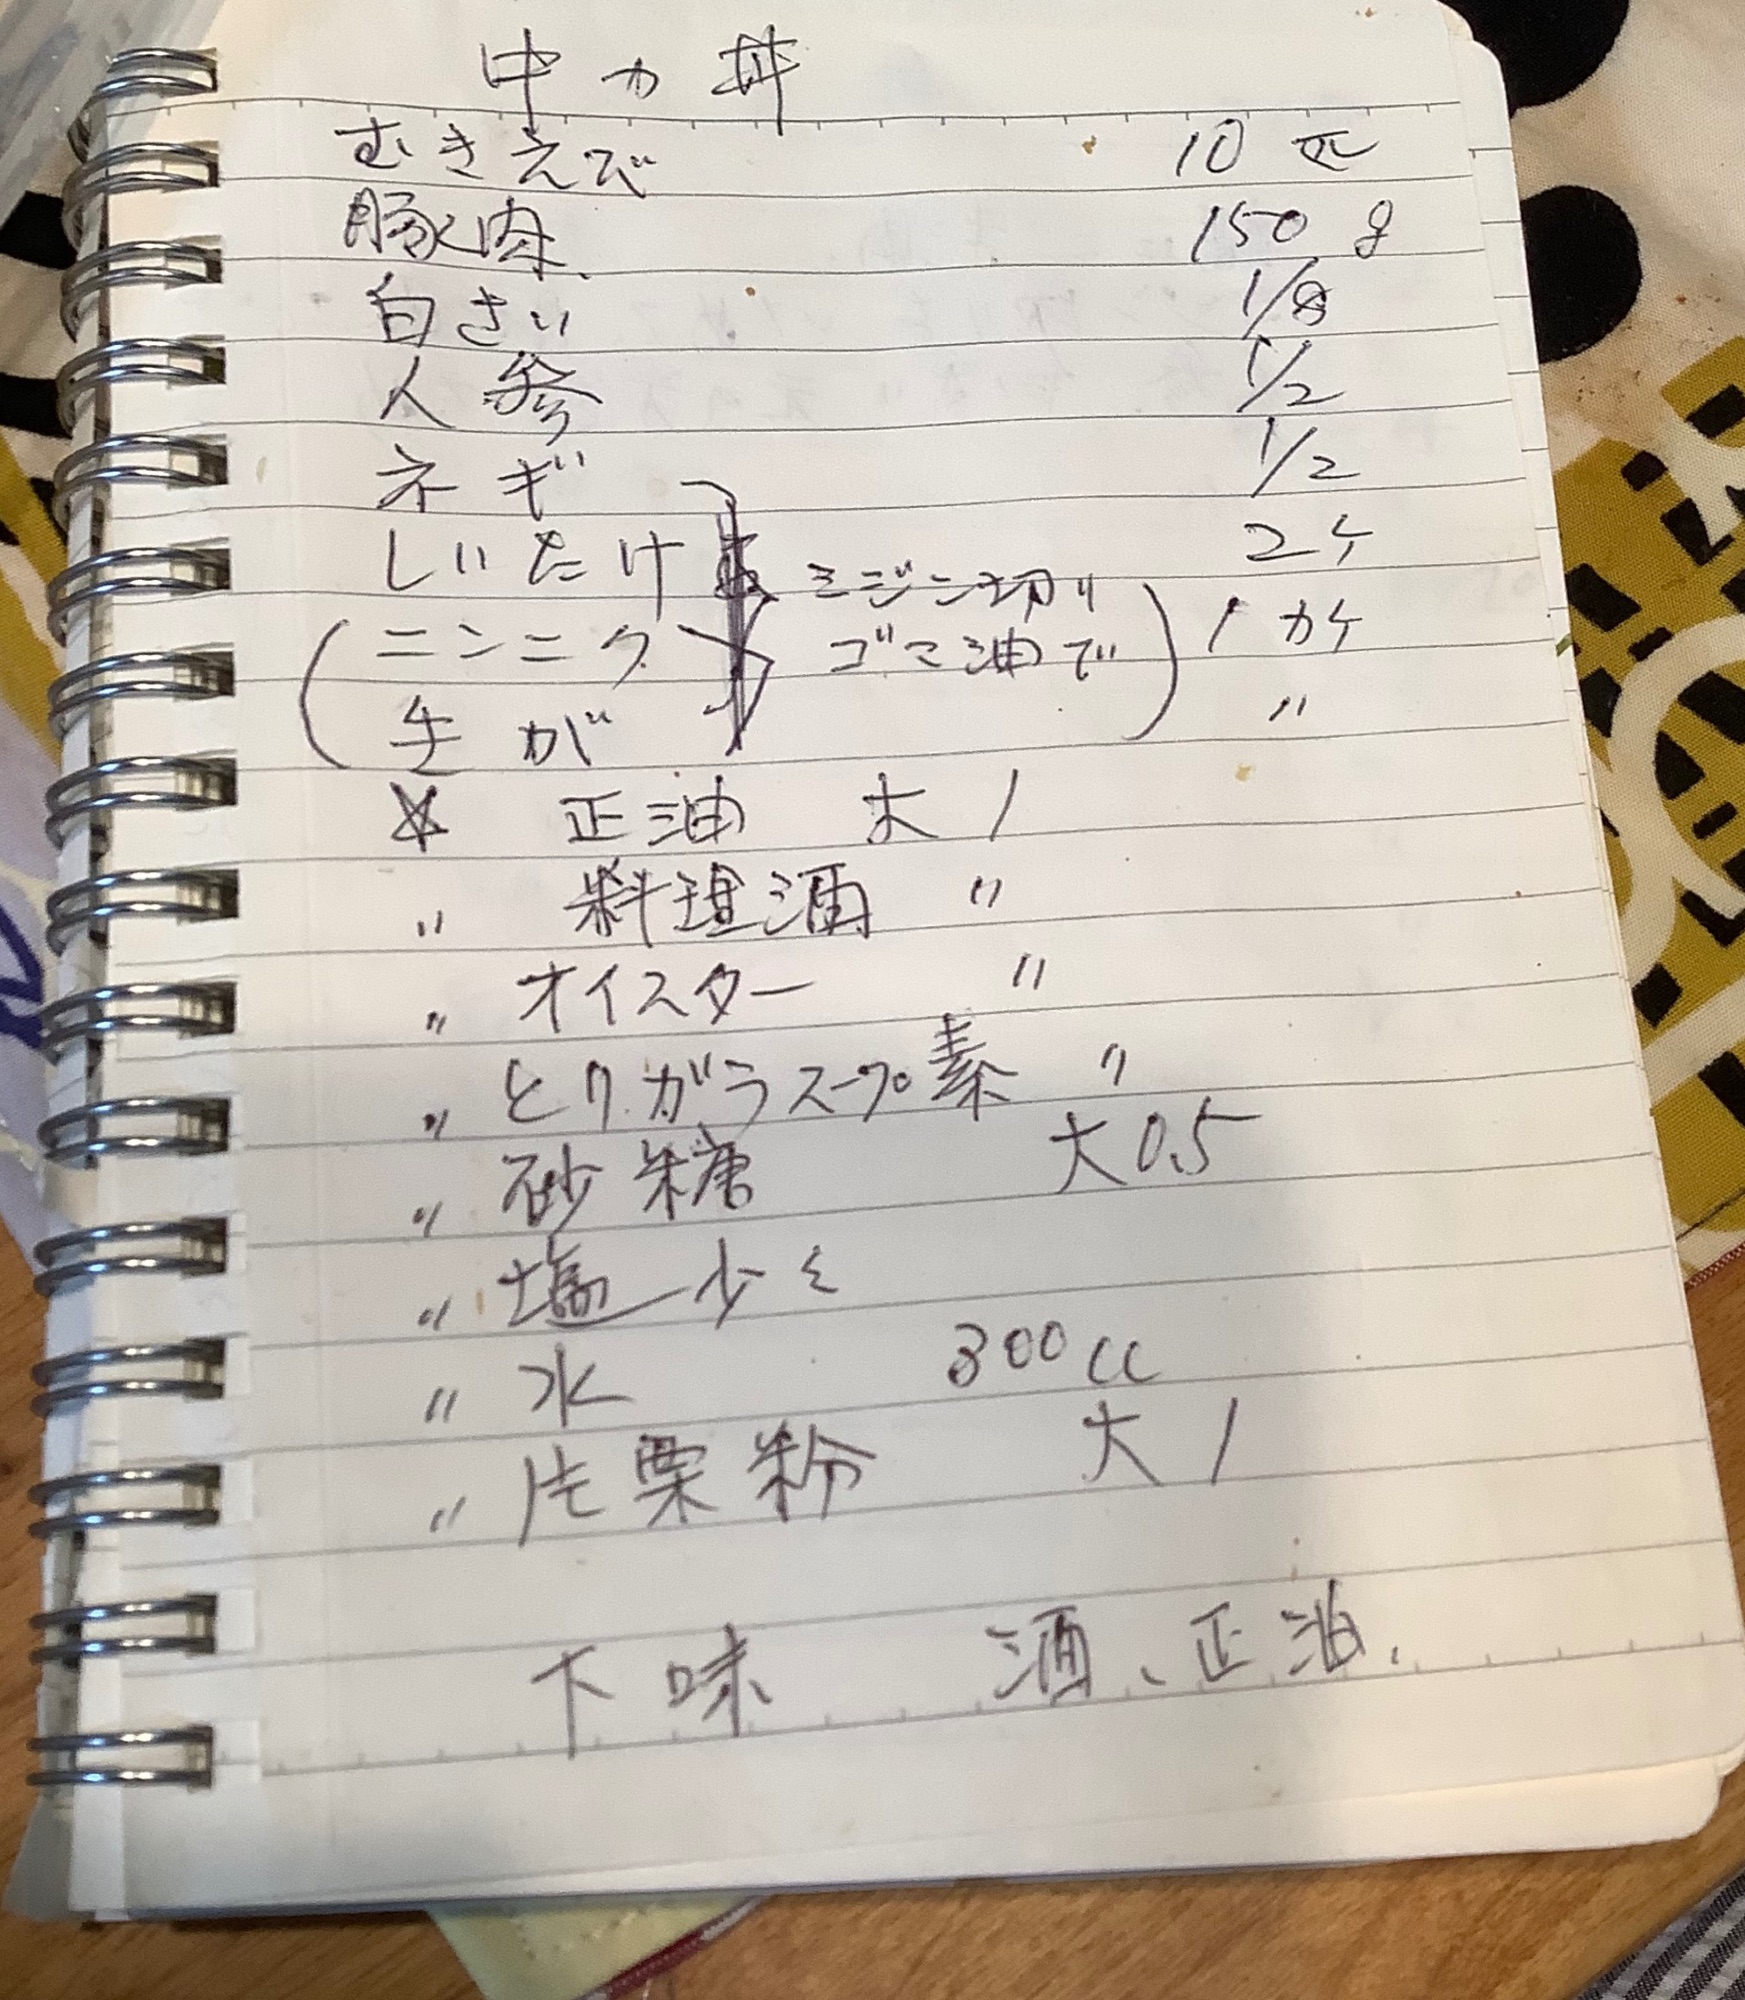 中カ丼
むきえび 10匹
豚肉 150g
白さい 1/8
人参 1/2
ネギ 1/2
しいたけ 2ケ
(ニンニク ミジン切り 1カケ
生が ゴマ油で) 〃
☆ 正油 大1
〃 料理酒 〃
〃 オイスター 〃
〃 とりガラスープ素 〃
〃 砂糖 大0.5
〃 塩 少々
〃 水 300cc
〃 片栗粉 大1
下味 酒、正油、